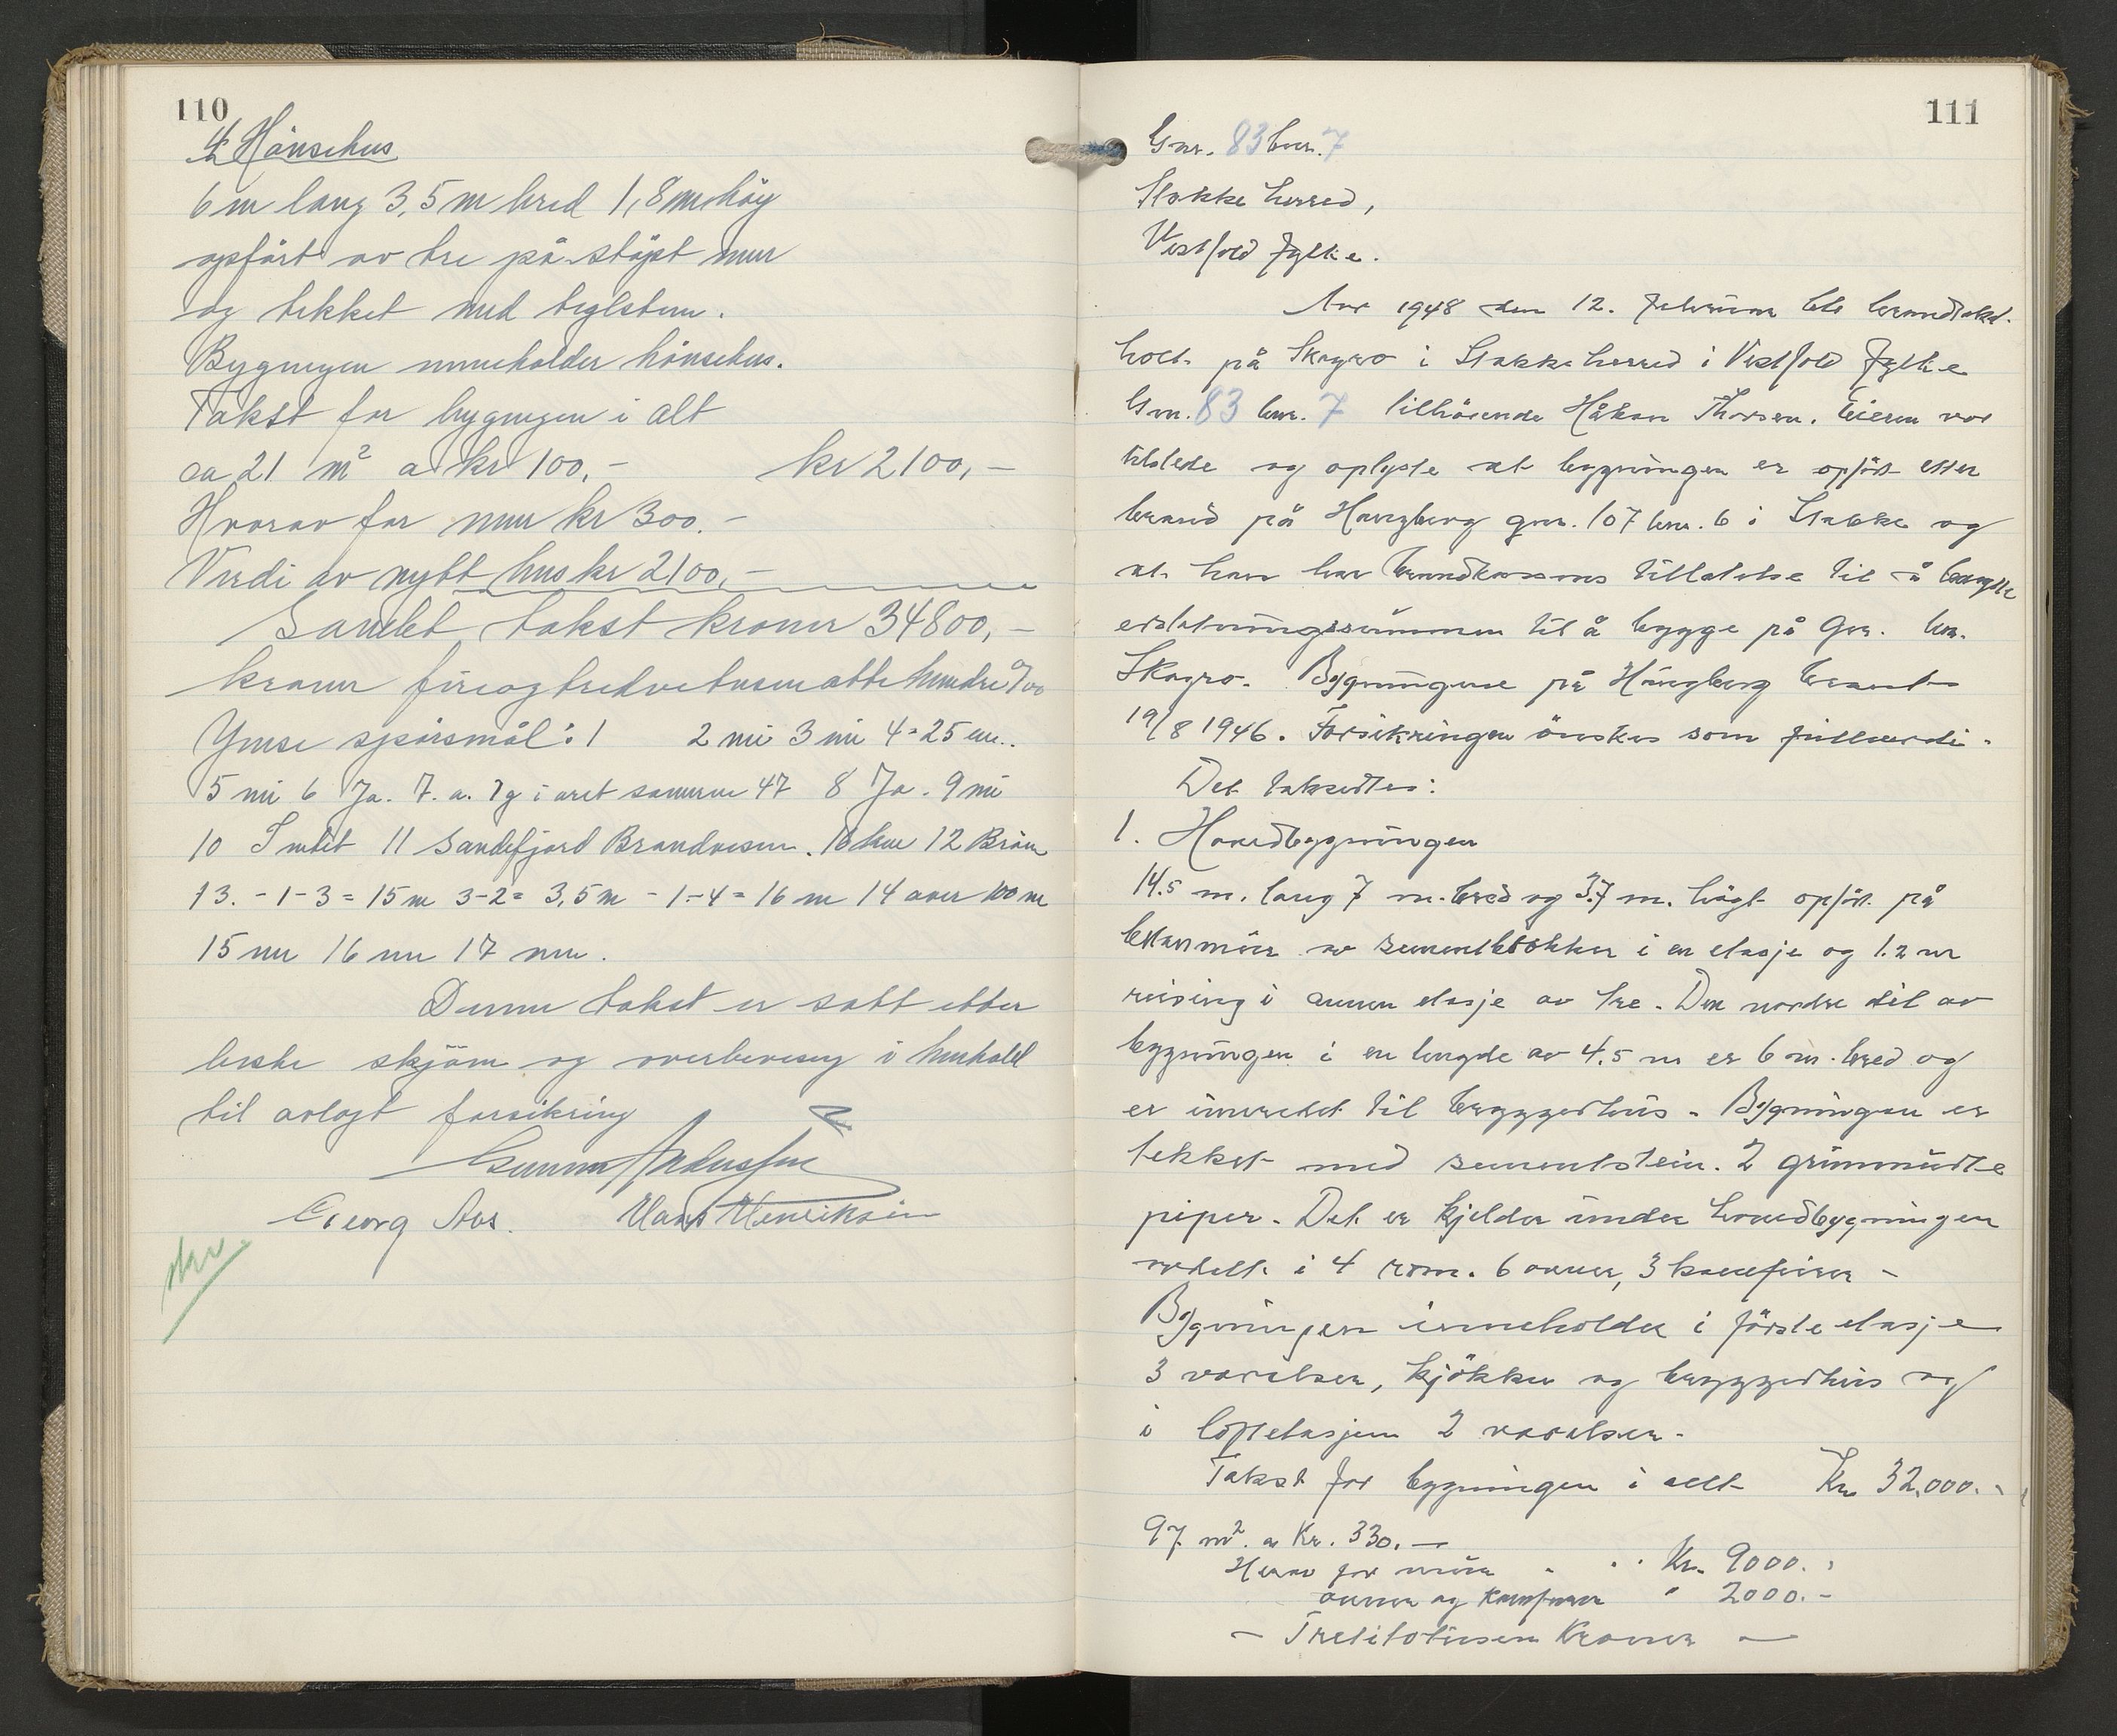 110
4 Hönsehus
6 m lang 3,5 m bred 1,8 m höy
opfört av tre på stöpt mur
og tekket med teglsten.
Bygningen inneholder hönsehus.
Takst for bygningen i alt
ca 21 m² a kr 100,- kr 2100,-
Hvorav for mur kr 300.-
Verdi av nytt hus kr 2100,-
Samlet takst kroner 34800,-
kroner fireogtredvetusenottehundre 0/00
Ymse spörsmål: 1 2 nei 3 nei 4 = 25 em..
5 nei 6 Ja. 7. a. 1 g i året 47 8 Ja. 9 nei
10 Intet 11 Sandefjord Brandvesen. 16 km 12
13. - 1-3 = 15 m 3-2 = 3,5 m - 1-4 = 16 m 14 over 100 m
15 nei 16 nei 17 nei.
Denne takst er satt etter
beste skjöm og overbevisng i henhold
til avlagt forsikring
Gunnar Andersen
Georg Aas. Hans Henriksen
111
Gnr. 83 bnr. 7
Stokke herred,
Vestfold fylke.
Aar 1948 den 12. februar ble brandtakst
holt på Skagro i Stokke herred i Vestfold fylke
Gnr. 83 bnr. 7 tilhörende Håkon Thorsen. Eieren var
tilstede og oplyste at bygningen er opfört etter
brand på Haugberg gnr. 107 bnr. 6 i Stokke og
at han har Brandkassens tillatelse til å benytte
erstatningssummen til å bygge på gnr. bnr.
Skagro. Bygningene på Haugberg brant
19/8 1946. Forsikringen önskes som fullverdi.
Det taksertes:
1. Hovedbygningen
14.5 m. lang 7 m. bred og 3.7 m. högt opfört på
av sementblokker i en etasje og 1.2 m
reising i annen etasje av tre. Den nordre del av
bygningen i en lengde av 4.5 m er 6 m. bred og
er innredet til bryggerhus. Bygningen er
tekket med sementstein. 2 grunnmurte
piper. Det er kjelder under hovedbygningen
avdelt i 4 rom. 6 ovner, 3 komfyrer -
Bygningen inneholder i förste etasje
3 værelser, kjökken og bryggerhus og
i loftetasjen 2 værelser.
Takst for bygningen i alt Kr. 32,000.-
97 m². a Kr. 330.-
Herav for mur " " Kr. 9000.-
ovner og komfyrer " 2000.-
- Trettitotusen Kroner -